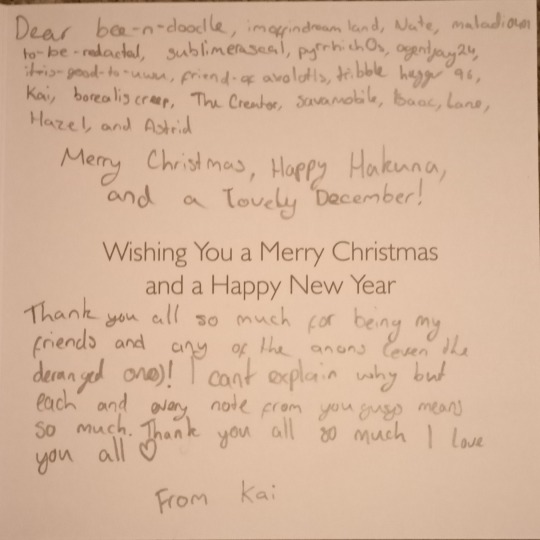 Dear bee-n-doodle, imoffindreamland, Nate, maladious
to-be-redacted, sublimeraseal, pyrrhich0s, agentjay24,
itsis-good-to-uwu, friend-of axolotls, tribble hugger 96,
Kai, borealis creep, The Creator, savamobile, Isaac, Lane,
Hazel, and Astrid
Merry Christmas, Happy Hakuna,
and a lovely December!
Wishing You a Merry Christmas
and a Happy New Year
Thank you all so much for being my
friends and any of the anons (even the
deranged ones)! I cant explain why but
each and every note from you guys means
so much. Thank you all so much I love
you all ♡
From Kai